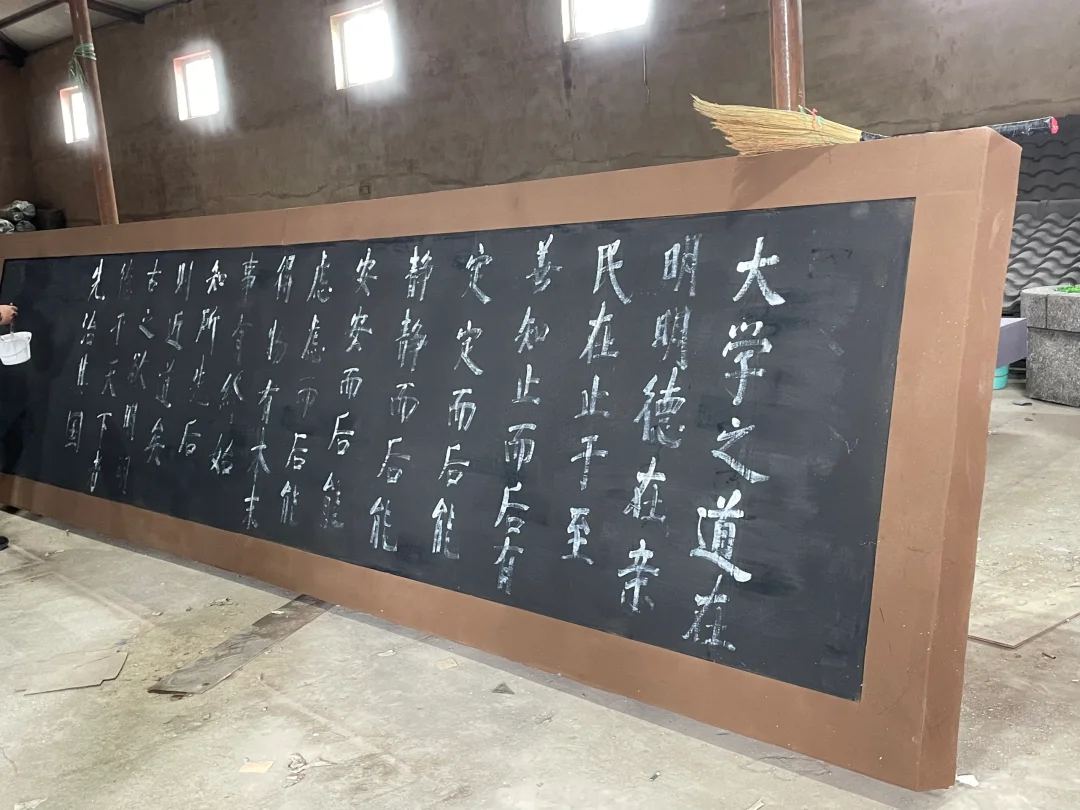 大学之道在
明明德在亲
民在止于至
善知止而后有
定定而后能
静静而后能
安安而后能
虑虑而后能
得物有本末
事有终始
知所先后
则近道矣
古之欲明明
德于天下者
先治其国